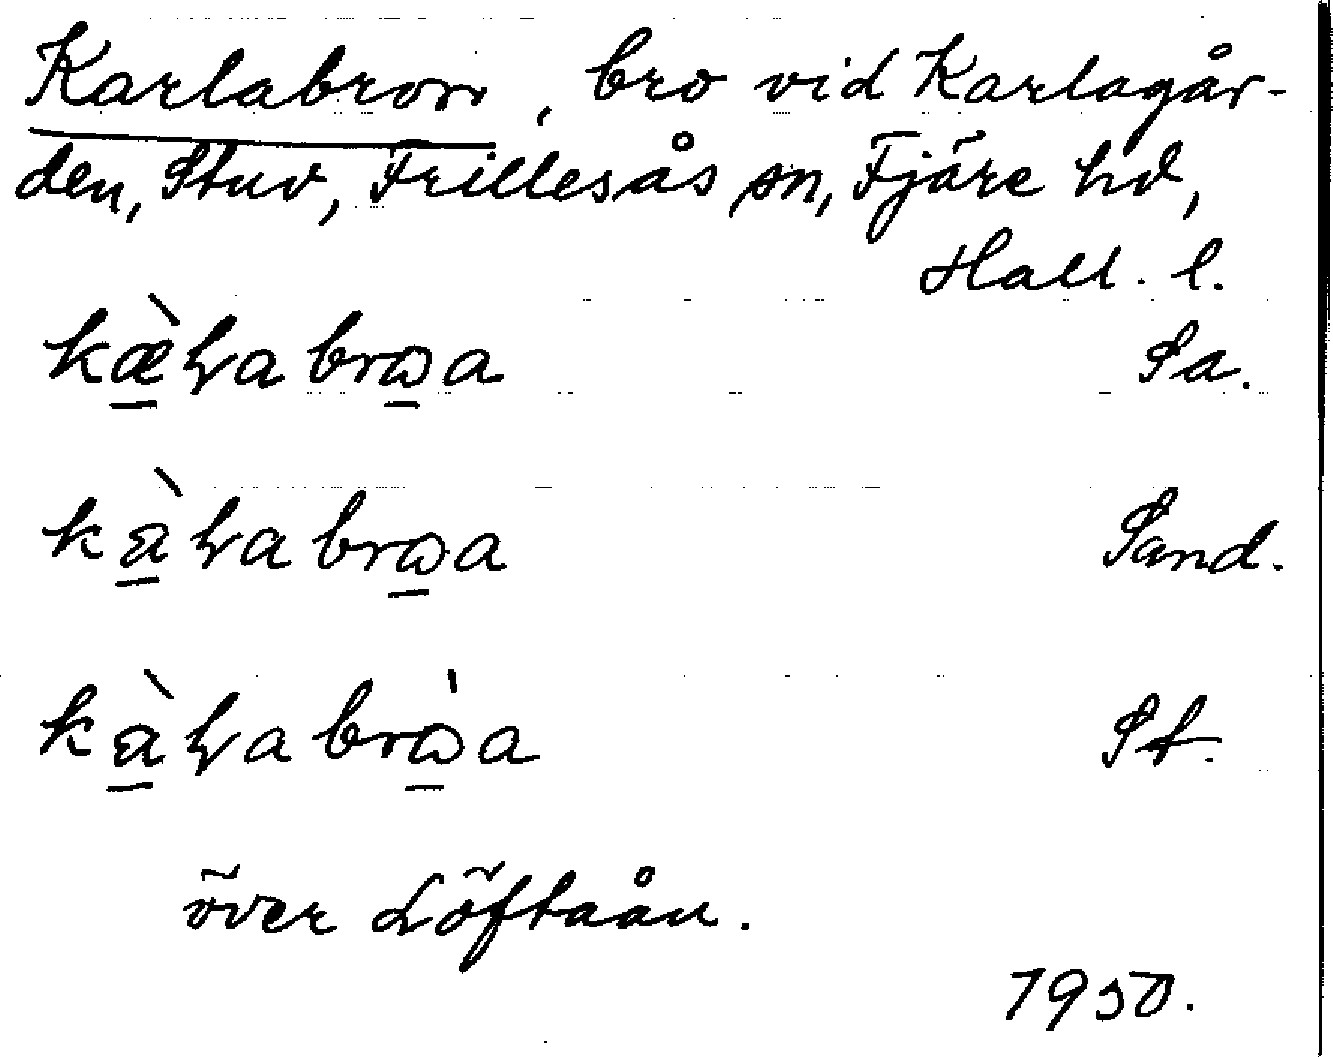 Karlabron, bro vid Karlagår-
den, Stuv, Frillesås sn, Fjäre hd,
Hall. l.
kæ̱̀ɫa brω̱a Sa.
kà̱ɫa brω̱a Sand.
kà̱ɫa brὼ̱a St.
över Löftaån.
1950.